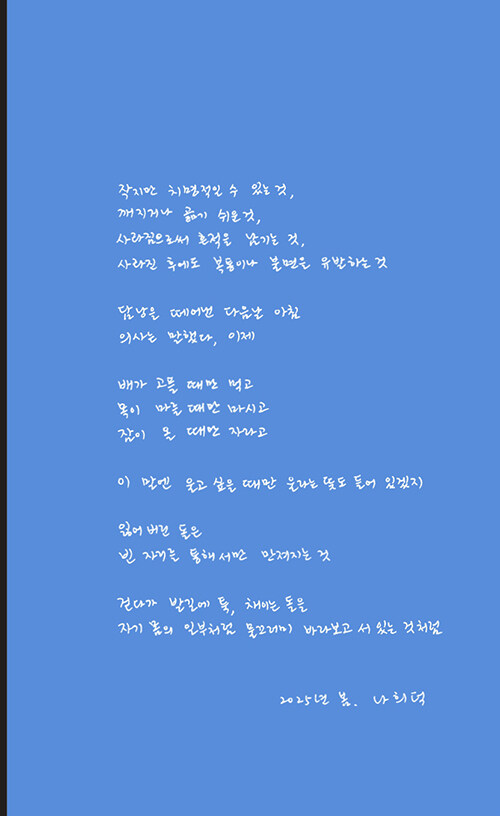 작지만 치명적일 수 있는 것,
깨지거나 곪기 쉬운 것,
사라짐으로써 흔적을 남기는 것,
사라진 후에도 복통이나 불면을 유발하는 것
담낭을 떼어낸 다음날 아침
의사는 말했다, 이제
배가 고플 때만 먹고
목이 마를 때만 마시고
잠이 올 때만 자라고
이 말엔 울고 싶을 때만 울라는 뜻도 들어 있겠지
잃어버린 돌은
빈 자리를 통해서만 만져지는 것
걷다가 발길에 툭, 채이는 돌을
자기 몸의 일부처럼 물끄러미 바라보고 서 있는 것처럼
2025년 봄. 나희덕